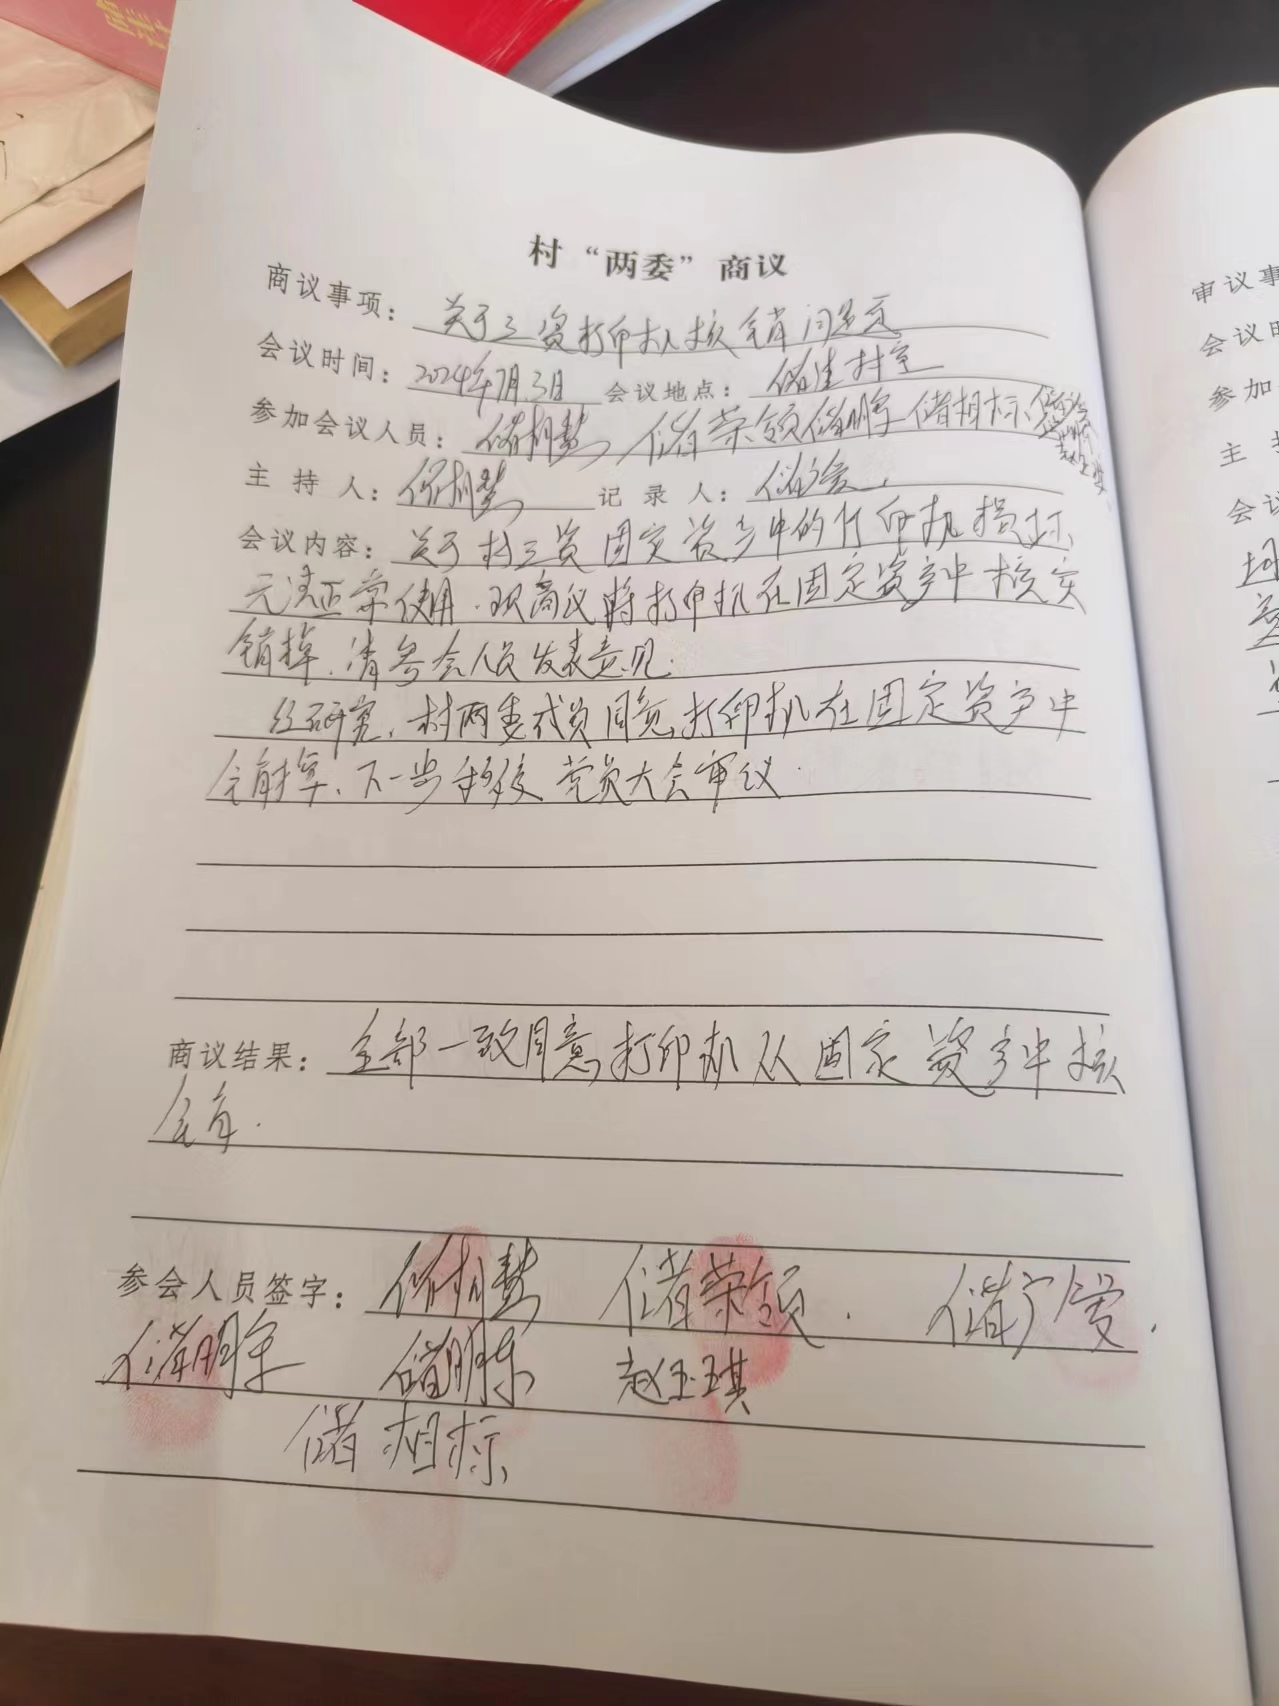 村“两委”商议
商议事项：关于三资打印机核销问题
会议时间：2024年7月3日 会议地点：储佳村室
参加会议人员：储相慧 储荣领 储明宇 储相标
赵玉琪
主 持 人：储相慧 记 录 人：储广爱
会议内容：关于村三资固定资产中的打印机损坏，
无法正常使用．现商议将打印机在固定资产中核实
销掉．请参会人员发表意见．
经研究，村两委成员同意打印机在固定资产中
销掉．下一步移使党员大会审议．
商议结果：全部一致同意打印机从固定资产中核
销．
参会人员签字：储相慧 储荣领． 储广爱．
储明宇 储明东 赵玉琪
储相标
审议事
会议时
参加
主 持
会议